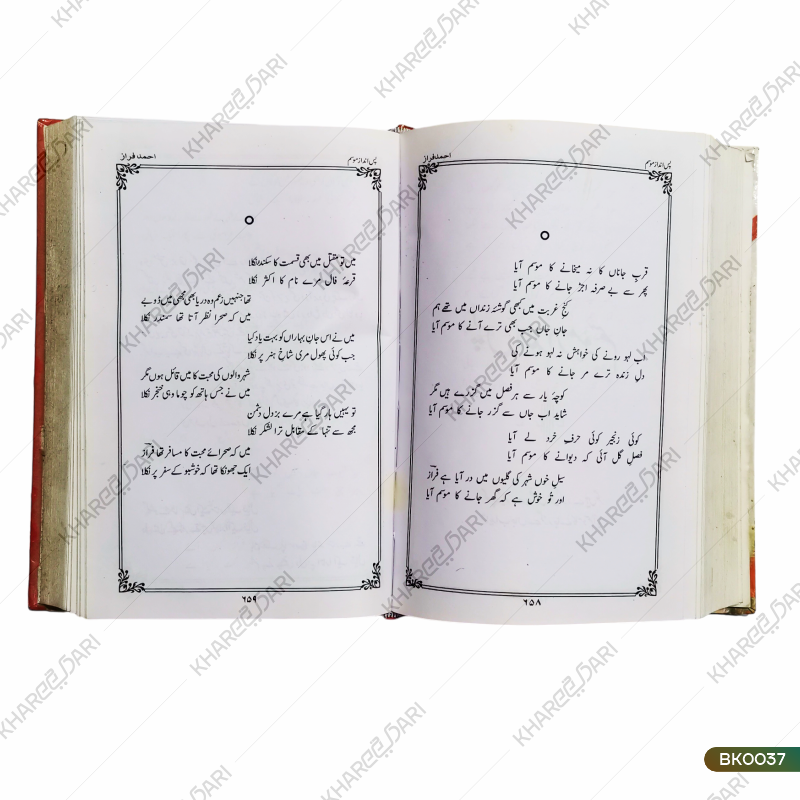 پس انداز موسم
احمد فراز
قربِ جاناں کا نہ میخانے کا موسم آیا
پھر سے بے صرفہ اجڑ جانے کا موسم آیا
کنجِ غربت میں کبھی گوشۂ زنداں میں تھے ہم
جانِ جاں جب بھی ترے آنے کا موسم آیا
اب لہو رونے کی خواہش نہ لہو ہونے کی
دلِ زندہ ترے مر جانے کا موسم آیا
کوچۂ یار سے ہر فصل میں گزرے ہیں مگر
شاید اب جاں سے گزر جانے کا موسم آیا
کوئی زنجیر کوئی حرفِ خرد لے آیا
فصلِ گل آئی کہ دیوانے کا موسم آیا
سیلِ خوں شہر کی گلیوں میں در آیا ہے فرازؔ
اور تُو خوش ہے کہ گھر جانے کا موسم آیا
۶۵۸
پس انداز موسم
احمد فراز
میں تو مقتل میں بھی قسمت کا سکندر نکلا
قرعۂ فال مرے نام کا اکثر نکلا
تھا جنہیں زعم وہ دریا بھی مجھی میں ڈوبے
میں کہ صحرا نظر آتا تھا سمندر نکلا
میں نے اس جانِ بہاراں کو بہت یاد کیا
جب کوئی پھول مری شاخِ ہنر پر نکلا
شہر والوں کی محبت کا میں قائل ہوں مگر
میں نے جس ہاتھ کو چوما وہی خنجر نکلا
تو یہیں ہار گیا ہے مرے بزدل دشمن
مجھ سے تنہا کے مقابل ترا لشکر نکلا
میں کہ صحرائے محبت کا مسافر تھا فرازؔ
ایک جھونکا تھا کہ خوشبو کے سفر پر نکلا
۶۵۹
KHAREEDARI
BK0037